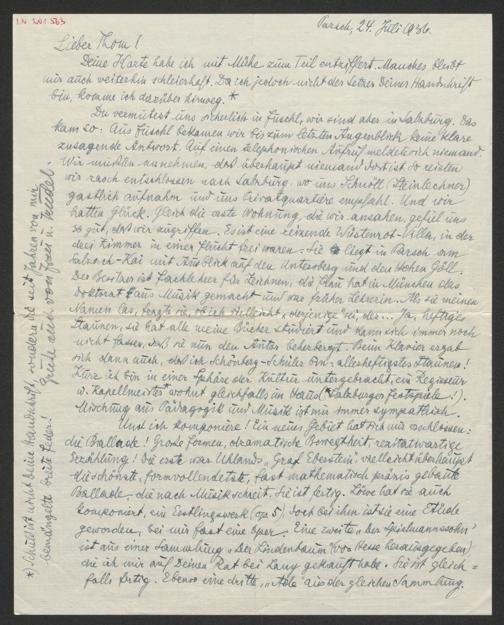 I.N. 201.563
Parsch, 24. Juli 1936.
Lieber Thom!
Deine Karte habe ich mit Mühe zum Teil entziffert. Manches bleibt
mir auch weiterhin schleierhaft. Da ich jedoch nicht der Setzer Deiner Handschrift
bin, komme ich darüber hinweg. *
Du vermutest uns sicherlich in Fuschl, wir sind aber in Salzburg. Das
kam so: Aus Fuschl bekamen wir bis zum letzten Augenblick keine klare
zusagende Antwort. Auf einen telephonischen Anruf meldete sich niemand.
Wir mußten annehmen, daß überhaupt niemand dort ist. So reisten
wir rasch entschlossen nach Salzburg, wo uns Schnöll (Steinlechner)
gastlich aufnahm und uns Privatquartiere empfahl. Und wir
hatten Glück. Gleich die erste Wohnung, die wir ansahen, gefiel uns
so gut, daß wir zugriffen. Es ist eine reizende Wüstenrot-Villa, in der
drei Zimmer in einer Flucht frei waren. Sie liegt in Parsch am
Kai mit Ausblick auf den Untersberg und den Hohen Göll.
Der Besitzer ist Fachlehrer für Zeichnen, die Frau hat in München das
Doktorat aus Musik gemacht und war früher Lehrerin. Als sie meinen
Namen las, fragte sie, ob ich vielleicht, derjenige sei, der... Ja, heftiges
Staunen, sie hat alle meine Bücher studiert und kann sich immer noch
nicht fassen, daß sie nun den Autor beherbergt. Beim Klavier ergab
sich dann auch, daß ich Schönberg-Schüler bin: allerheftigstes Staunen!
Kurz ich bin in einer Sphäre der Kultur untergebracht, ein Regisseur
u. Kapellmeister wohnt gleichfalls im Haus (Salzburger Festspiele!).
Mischung aus Pädagogik und Musik ist mir immer sympathisch.
Und ich komponiere! Ein neues Gebiet hat sich mir erschlossen:
die Ballade! Große Formen, dramatische Bewegtheit,
Erzählung! Die erste war Uhlands "Graf Eberstein" vielleicht überhaupt
die schönste, formvollendetste, fast mathematisch präzis gebaute
Ballade, die nach Musik schreit. Sie ist fertig. Löwe hat sie auch
komponiert, ein Erstlingswerk (op. 5). Doch bei ihm ist sie eine Etüde
geworden, bei mir fast eine Oper. Eine zweite "Der Spielmannssohn"
ist aus einer Sammlung "Der Lindenbaum" (von Hesse herausgegeben)
die ich mir auf Deinen Rat bei Lany gekauft habe. Sie ist gleich-
falls fertig. Ebenso eine dritte, aus der gleichen Sammlung.
*) Schuld ist nicht deine Handschrift, sondern die seit Jahren von mir
bemängelte breite Feder!
Grüße auch von Frau u. Rudel.